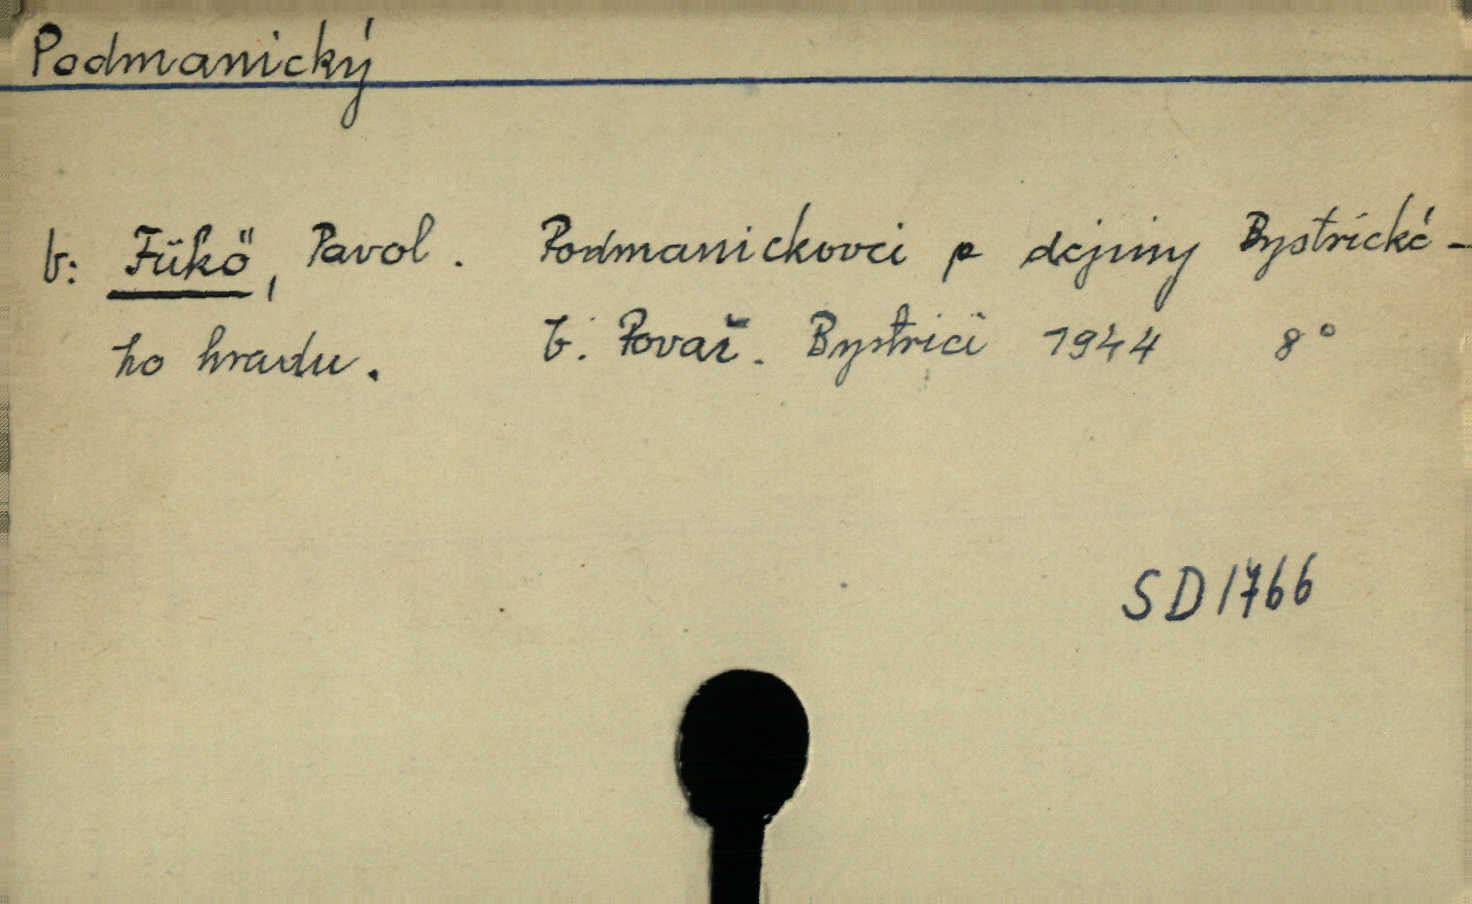 Podmanický
b: Fükö, Pavol. Podmanickovci a dejiny Bystrické-
ho hradu. b. Považ. Bystrici 1944 8°
SD1766